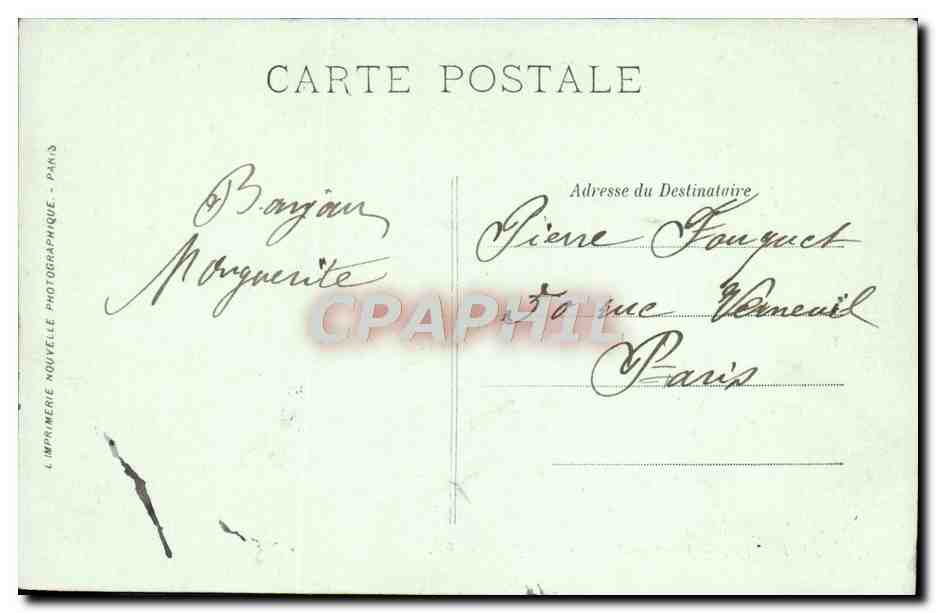 CARTE POSTALE
L'IMPRIMERIE NOUVELLE PHOTOGRAPHIQUE - PARIS
Marguerite
Adresse du Destinataire
Pierre Fouquet
rue Verneuil
Paris
CPAPHIL